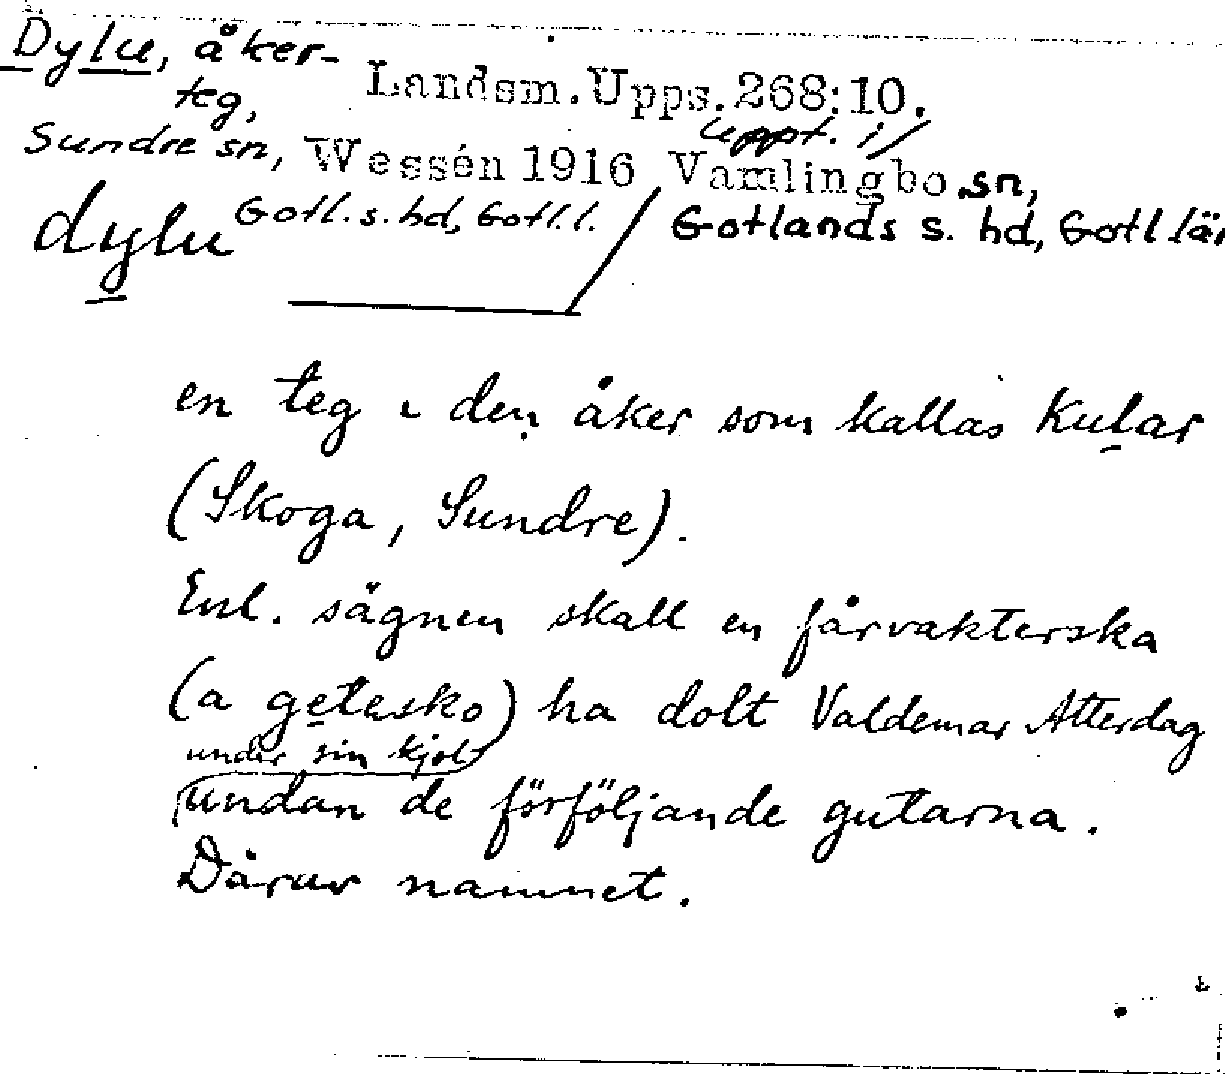 Dylu, åker-
teg, Landsm. Upps. 268:10.
Sundre sn, Wessén 1916 uppt. i/ Vamlingbo sn,
dylu Gotl. s. hd, Gotl. l. / Gotlands s. hd, Gotl. lä
en teg i den åker som kallas Kular
(Skoga, Sundre).
Enl. sägnen skall en fårvakterska
(a getasko) ha dolt Valdemar Atterdag
under sin kjol
undan de förföljande gutarna.
Därav namnet.